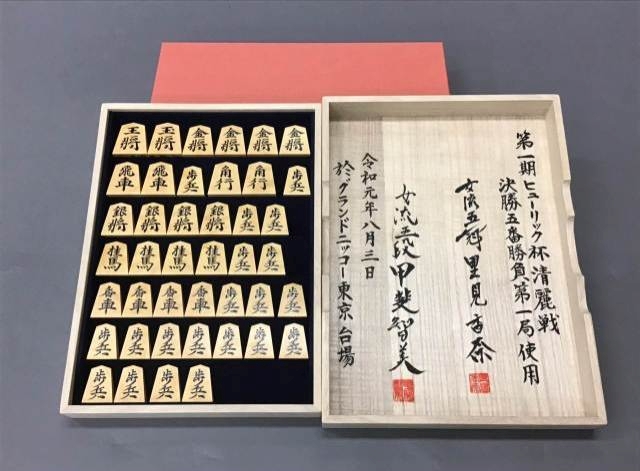 王將 玉將 金將 金將 金將 金將
飛車 飛車 歩兵 角行 角行 歩兵
銀將 銀將 銀將 銀將 歩兵 歩兵
桂馬 桂馬 桂馬 桂馬 歩兵 歩兵
香車 香車 香車 香車 歩兵 歩兵 歩兵
歩兵 歩兵 歩兵 歩兵 歩兵 歩兵 歩兵
歩兵 歩兵 歩兵 歩兵
第一期ヒューリック杯清麗戦
決勝五番勝負第一局使用
女流五冠 里見香奈
女流五段 甲斐智美
令和元年八月三日
於 グランドニッコー東京 台場